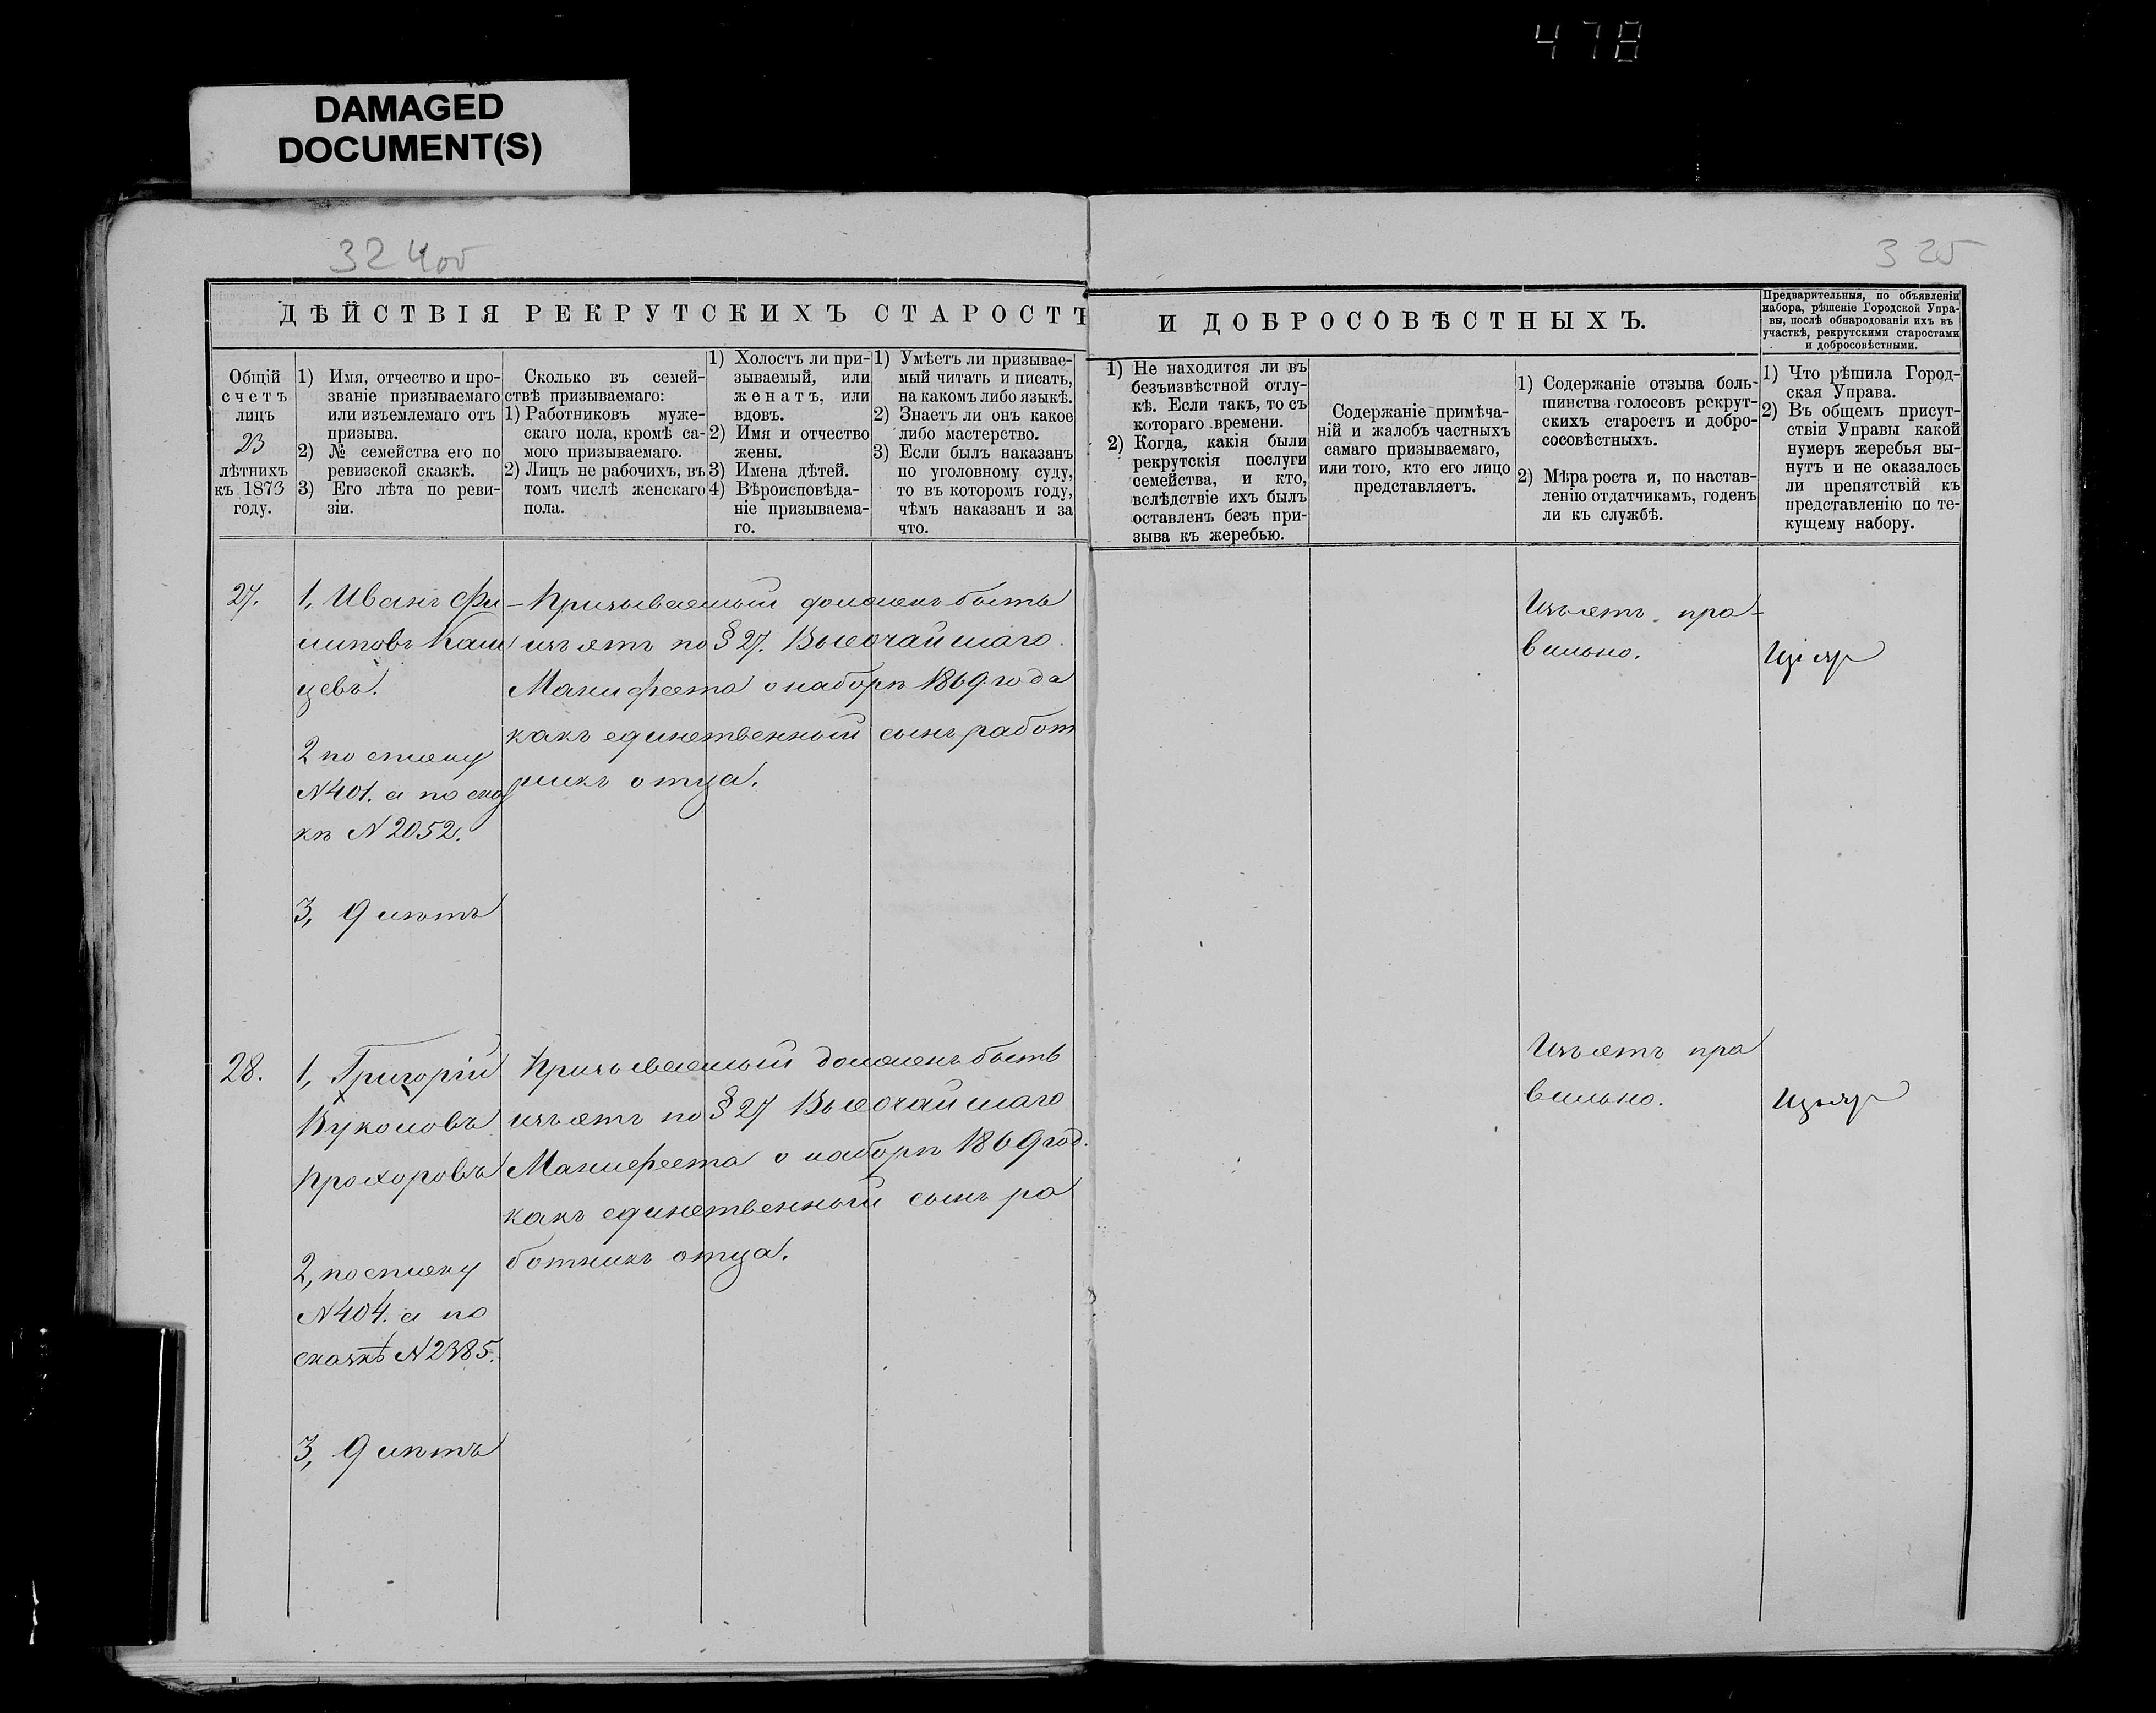 478
DAMAGED
DOCUMENT(S)
324об
325
ДѢЙСТВІЯ РЕКРУТСКИХЪ СТАРОСТЪ
И ДОБРОСОВѢСТНЫХЪ.
Общій
счетъ
лицъ
23
лѣтнихъ
къ 1873
году.
1) Имя, отчество и про-
званіе призываемаго
или изъемлемаго отъ
призыва.
2) № семейства его по
ревизской сказкѣ.
3) Его лѣта по реви-
зіи.
Сколько въ семей-
ствѣ призываемаго:
1) Работниковъ муже-
скаго пола, кромѣ са-
мого призываемаго.
2) Лицъ не рабочихъ, въ
томъ числѣ женскаго
пола.
1) Холостъ ли при-
зываемый, или
женатъ, или
вдовъ.
2) Имя и отчество
жены.
3) Имена дѣтей.
4) Вѣроисповѣда-
ніе призываема-
го.
1) Умѣетъ ли призывае-
мый читать и писать,
на какомъ либо языкѣ.
2) Знаетъ ли онъ какое
либо мастерство.
3) Если былъ наказанъ
по уголовному суду,
то въ которомъ году,
чѣмъ наказанъ и за
что.
1) Не находится ли въ
безъизвѣстной отлу-
кѣ. Если такъ, то съ
котораго времени.
2) Когда, какія были
рекрутскія послуги
семейства, и кто,
вслѣдствіе ихъ былъ
оставленъ безъ при-
зыва къ жеребью.
Содержаніе примѣча-
ній и жалобъ частныхъ
самаго призываемаго,
или того, кто его лицо
представляетъ.
1) Содержаніе отзыва боль-
шинства голосовъ рекрут-
скихъ старостъ и добро-
сосовѣстныхъ.
2) Мѣра роста и, по настав-
ленію отдатчикамъ, годенъ
ли къ службѣ.
Предварительныя, по объявленіи
набора, рѣшеніе Городской Упра-
вы, послѣ обнародованія ихъ въ
участкѣ, рекрутскими старостами
и добросовѣстными.
1) Что рѣшила Город-
ская Управа.
2) Въ общемъ присут-
ствіи Управы какой
нумеръ жеребья вы-
нутъ и не оказалось
ли препятствій къ
представленію по те-
кущему набору.
27.
1, Иванъ Фи-
липовъ Каш
цевъ.
2 по списку
N401. а по сказ
кѣ N2052.
3, 9 лѣтъ
Призываемый долженъ быть
изъятъ по § 27. Высочайшаго
Манифеста о наборѣ 1869 года
какъ единственный сынъ работ
никъ отца.
Изъятъ пра-
вильно.
28.
1, Григорій
Вуколовъ
Прохоровъ
2, по списку
N404. а по
сказкѣ N2385.
3, 9 лѣтъ
Призываемый долженъ быть
изъятъ по § 27 Высочайшаго
Манифеста о наборѣ 1869 год.
какъ единственный сынъ ра
ботникъ отца.
Изъятъ пра
вильно.